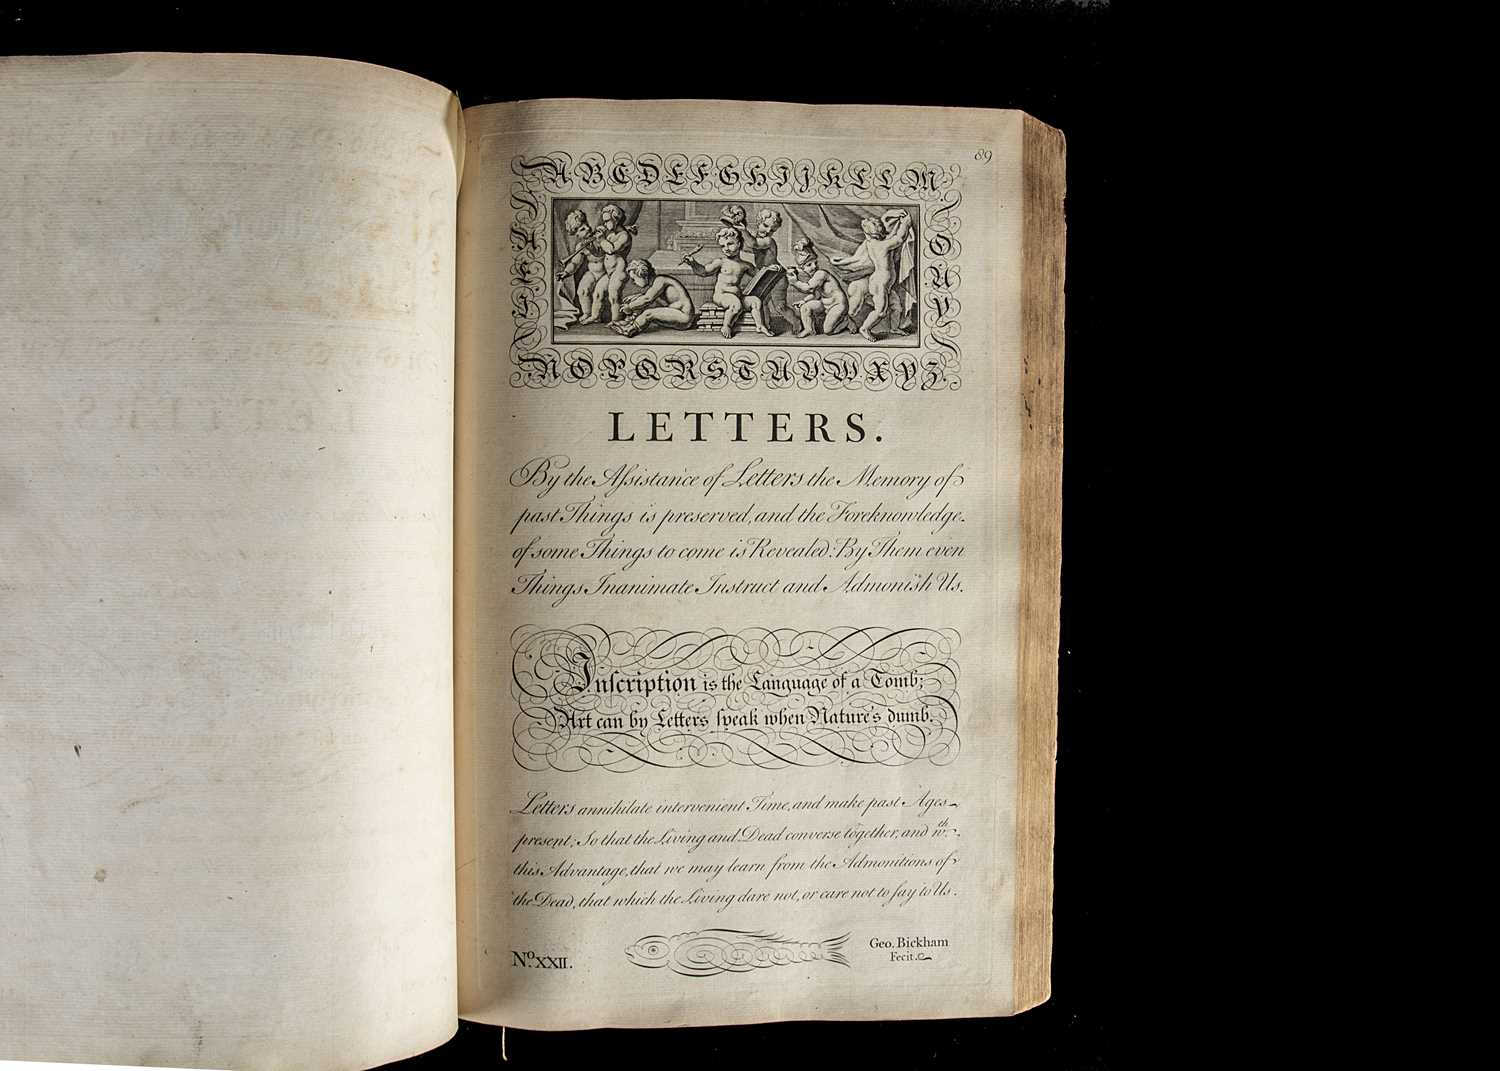 89
A B C D E F G H I J K L L M
O U V
N O P Q R S T U V W X Y Z.
LETTERS.
By the Aſsistance of Letters the Memory of
past Things is preserved, and the Foreknowledge
of some Things to come is Revealed: By Them even
Things Inanimate Instruct and Admonish Us.
Inſcription is the Language of a Tomb;
Art can by Letters ſpeak when Nature's dumb.
Letters annihilate intervenient Time, and make past Ages
present; So that the Living and Dead converse together, and wth.
this Advantage, that we may learn from the Admonitions of
the Dead, that which the Living dare not, or care not to ſay to Us.
No. XXII.
Geo. Bickham
Fecit.